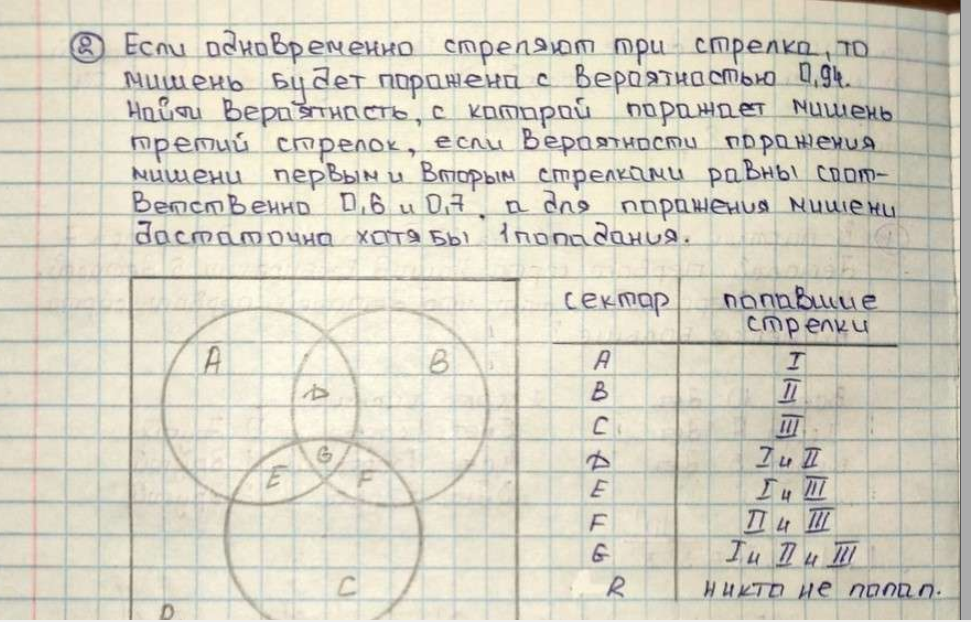 2 Если одновременно стреляют три стрелка, то
мишень будет поражена с вероятностью 0,94.
Найти вероятность, с которой поражает мишень
третий стрелок, если вероятности поражения
мишени первым и вторым стрелками равны соот-
ветственно 0,6 и 0,7, а для поражения мишени
достаточно хотя бы 1 попадания.
сектор попавшие
стрелки
A I
B II
C III
D I и II
E I и III
F II и III
G I и II и III
R никто не попал.
A B
D
G
E F
C